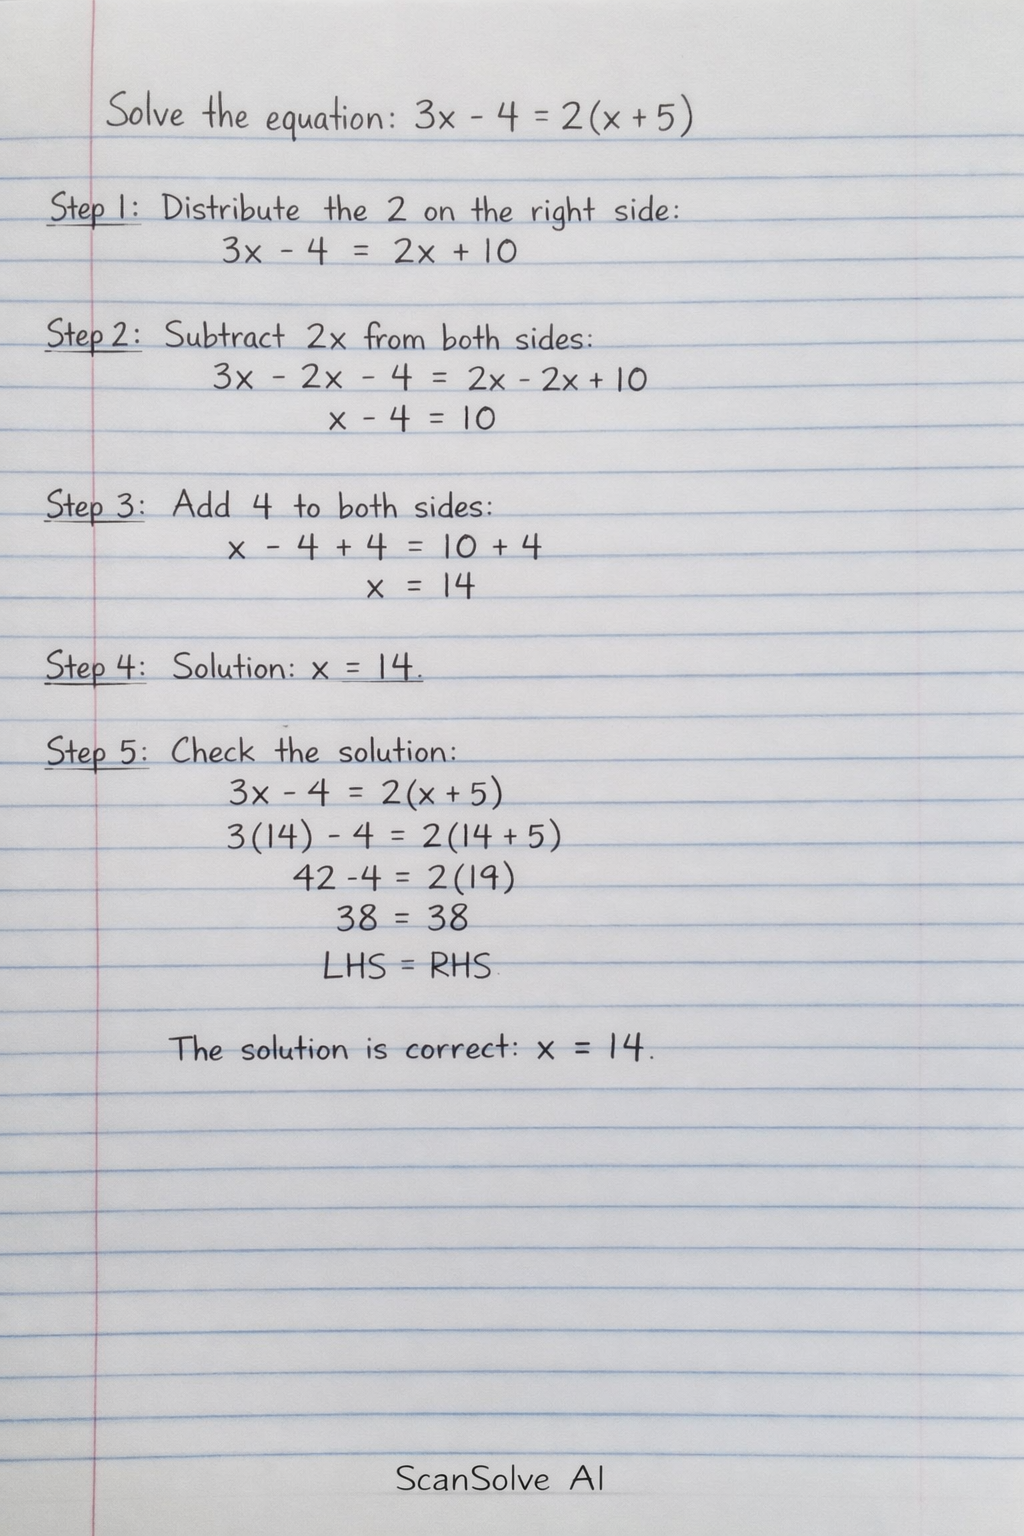 Solve the equation: 3x - 4 = 2(x + 5)
Step 1: Distribute the 2 on the right side:
3x - 4 = 2x + 10
Step 2: Subtract 2x from both sides:
3x - 2x - 4 = 2x - 2x + 10
x - 4 = 10
Step 3: Add 4 to both sides:
x - 4 + 4 = 10 + 4
x = 14
Step 4: Solution: x = 14.
Step 5: Check the solution:
3x - 4 = 2(x + 5)
3(14) - 4 = 2(14 + 5)
42 - 4 = 2(19)
38 = 38
LHS = RHS.
The solution is correct: x = 14.
ScanSolve AI